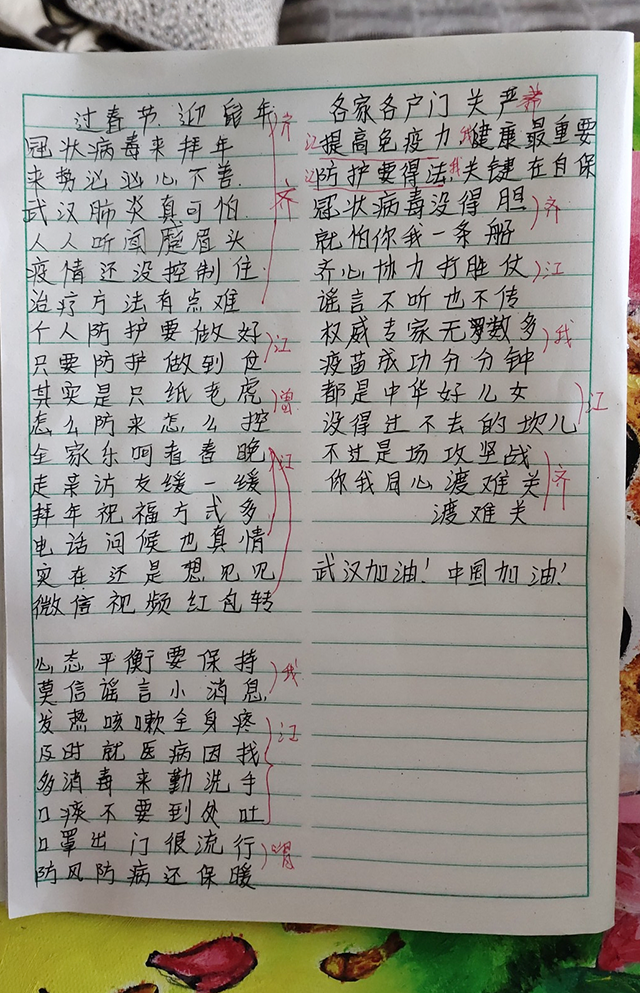 过春节 迎鼠年
冠状病毒来拜年
来势汹汹心不善
武汉肺炎真可怕
人人听闻蹙眉头
疫情还没控制住
治疗方法有点难
个人防护要做好
只要防护做到位
其实是只纸老虎
怎么防来怎么控
全家乐呵看春晚
走亲访友缓一缓
拜年祝福方式多
电话问候也真情
实在还是想见见
微信视频红包转
心态平衡要保持
莫信谣言小消息
发热咳嗽全身疼
及时就医病因找
多消毒来勤洗手
口痰不要到处吐
口罩出门很流行
防风防病还保暖
齐
齐
江
曾
江
我
江
各家各户门关严
江提高免疫力 我健康最重要
江防护要得法 我关键在自保
冠状病毒没得胆
就怕你我一条船
齐心协力打胜仗
谣言不听也不传
权威专家无数多
疫苗成功分分钟
都是中华好儿女
没得过不去的坎儿
不过是场攻坚战
你我同心渡难关
渡难关
武汉加油！中国加油！
齐
江
我
江
齐